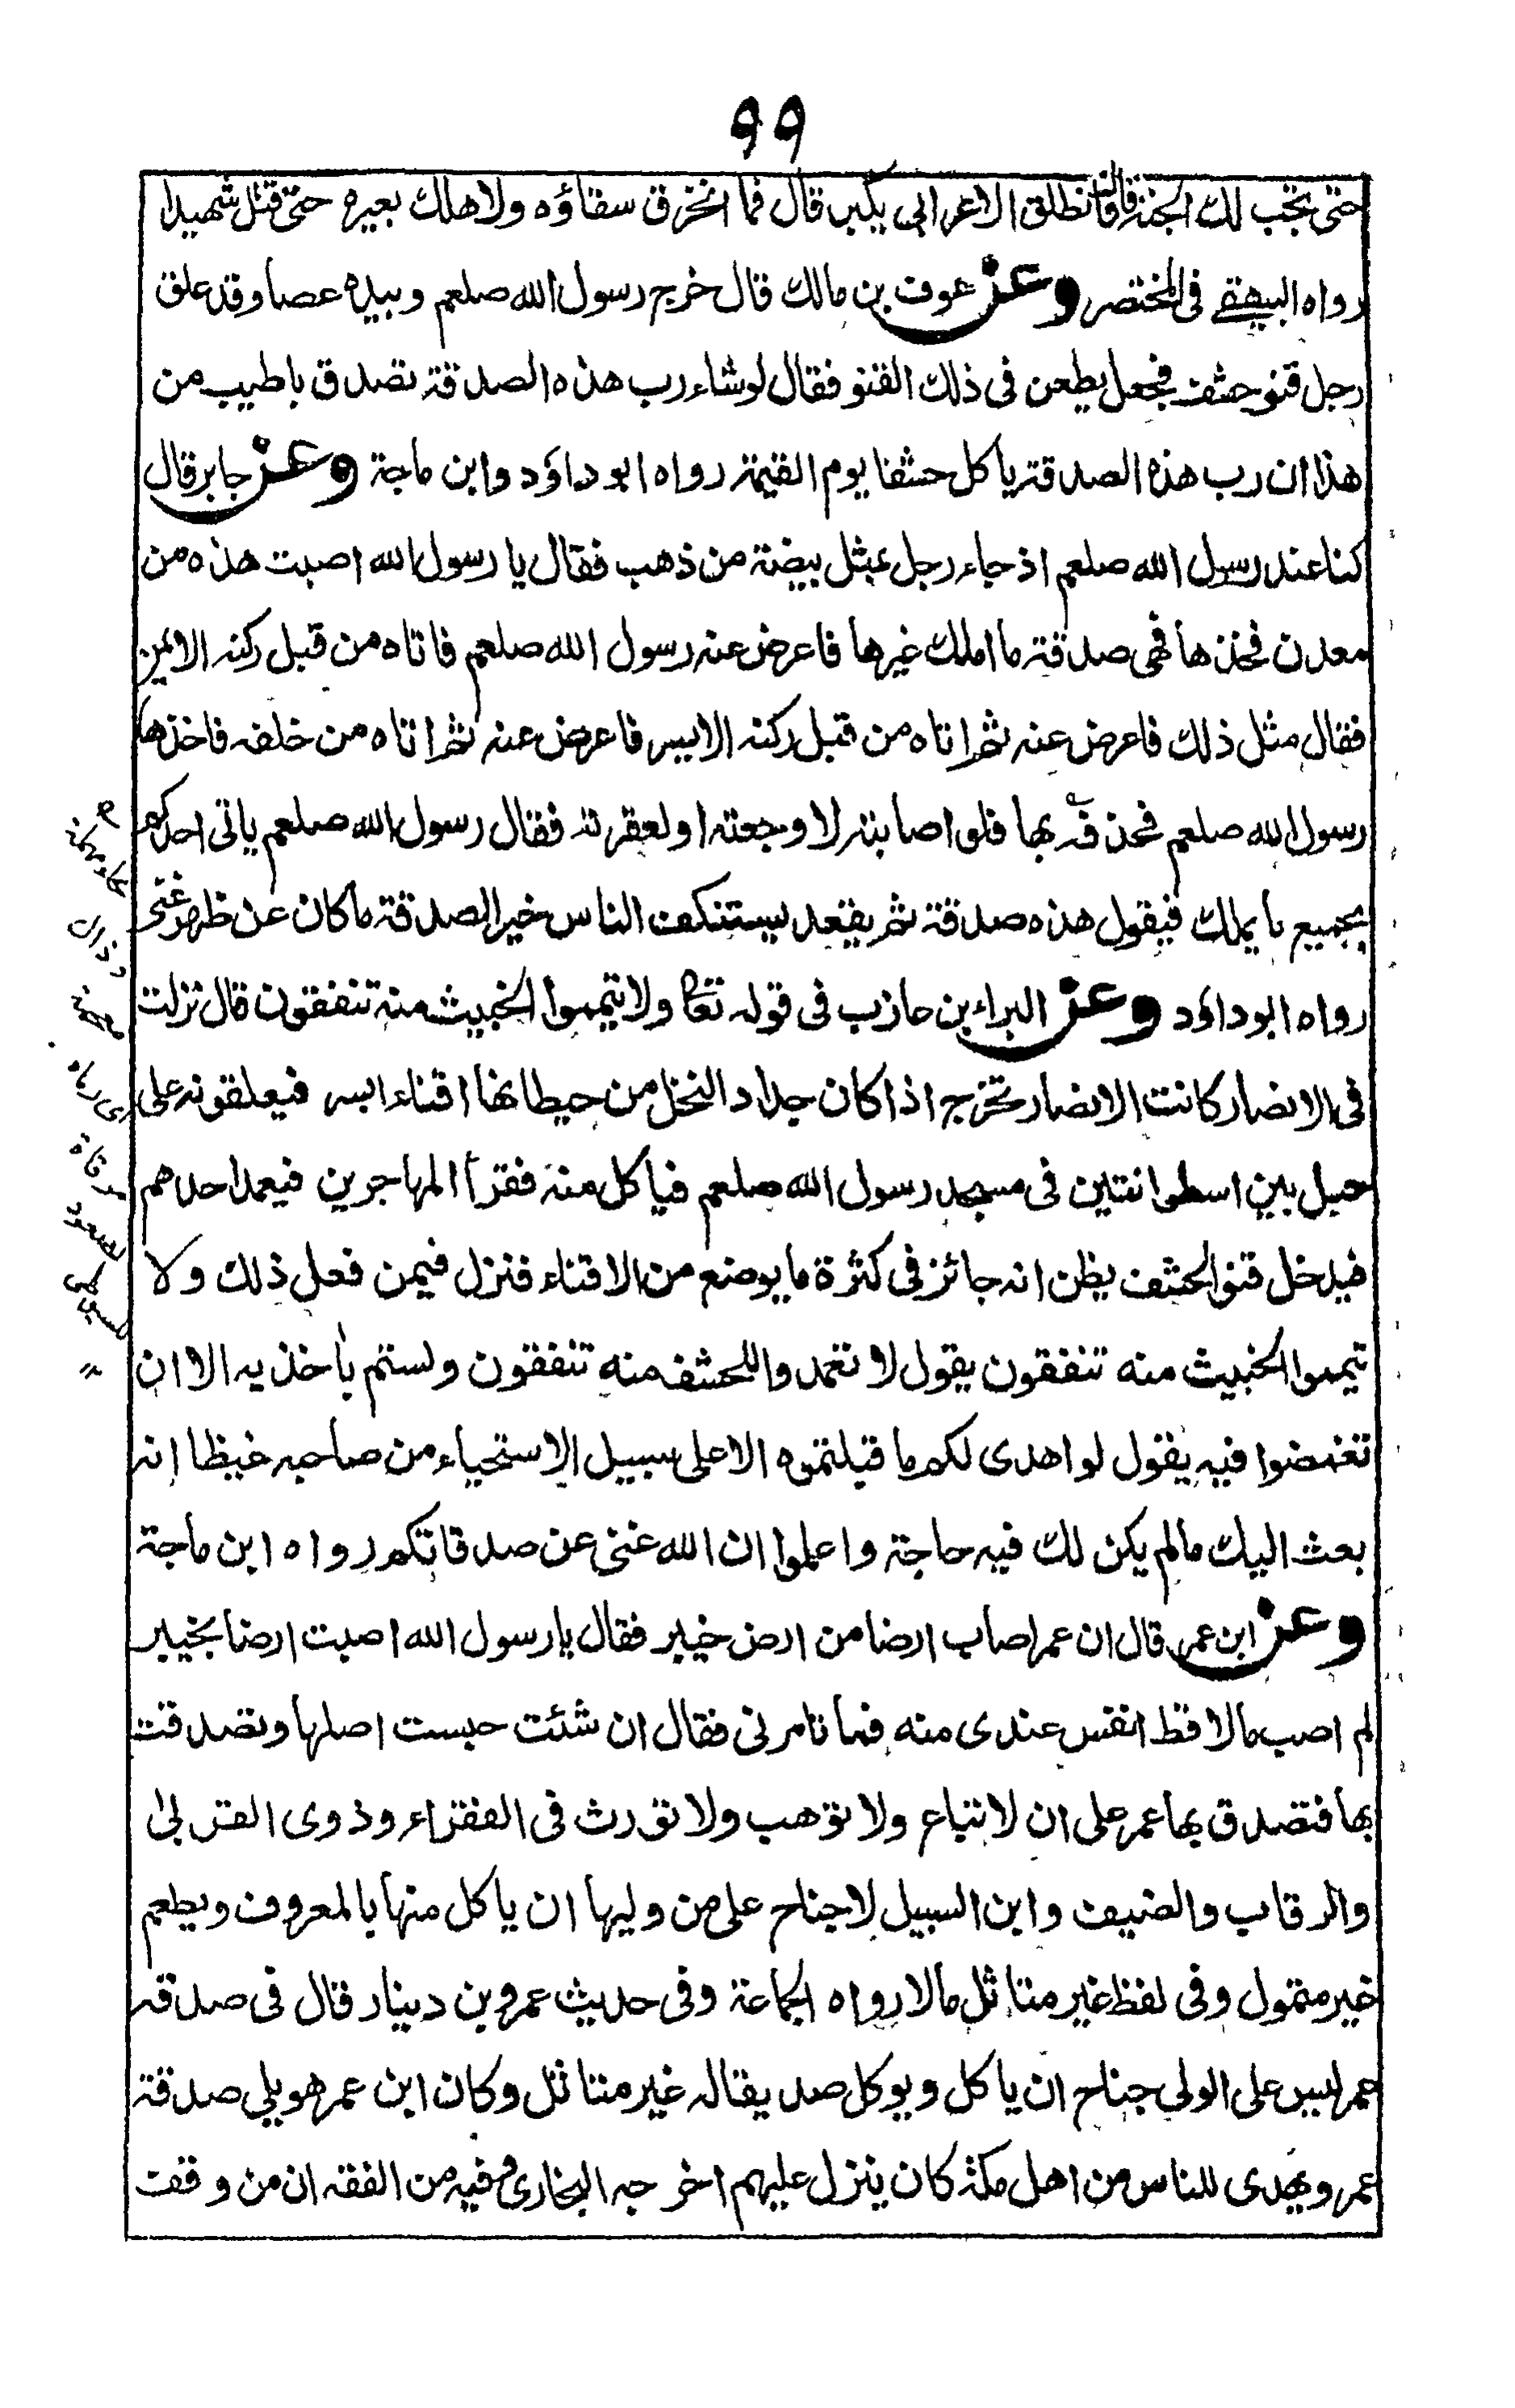 ٩٩
حتى تجب لك الجنة قال فانطلق الاعرابي يكبر قال فما انخرق سقاؤه ولا هلك بعيره حتى قتل شهيدا
رواه البيهقے فى المختصر وعن عوف بن مالك قال خرج رسول الله صلعم وبيده عصا وقد علق
رجل قنو حشف فجعل يطعن فى ذلك القنو فقال لو شاء رب هذه الصدقة تصدق باطيب من
هذا ان رب هذه الصدقة ياكل حشفا يوم القيمة رواه ابو داؤد وابن ماجة وعن جابر قال
كنا عند رسول الله صلعم اذ جاء رجل بمثل بيضة من ذهب فقال يا رسول الله اصبت هذه من
معدن فخذها فهى صدقة ما املك غيرها فاعرض عنه رسول الله صلعم فاتاه من قبل ركنه الايمن
فقال مثل ذلك فاعرض عنه ثم اتاه من قبل ركنه الايسر فاعرض عنه ثم اتاه من خلفه فاخذها
رسول الله صلعم فحذفه بها فلو اصابته لاوجعته او لعقرته فقال رسول الله صلعم ياتى احدكم
بجميع ما يملك فيقول هذه صدقة ثم يقعد يستنكف الناس خير الصدقة ما كان عن ظهر غنى
رواه ابو داؤد وعن البراء بن عازب فى قوله تعالى ولا تيمموا الخبيث منه تنفقون قال نزلت
فى الانصار كانت الانصار تخرج اذا كان جداد النخل من حيطانها اقناء البسر فيعلقونه على
حبل بين اسطوانتين فى مسجد رسول الله صلعم فياكل منه فقرأ المهاجرين فيعمد احدهم
فيدخل قنو الحشف يظن انه جائز فى كثرة ما يوضع من الاقناء فنزل فيمن فعل ذلك ولا
تيمموا الخبيث منه تنفقون يقول لا تعمدوا للحشف منه تنفقون ولستم بأخذيه الا ان
تغمضوا فيه يقول لو اهدى لكم ما قبلتموه الا على سبيل الاستحياء من صاحبه غيظا انه
بعث اليك ما لم يكن لك فيه حاجة واعلموا ان الله غنى عن صدقاتكم رواه ابن ماجة
وعن ابن عمر قال ان عمر اصاب ارضا من ارض خيبر فقال يا رسول الله اصبت ارضا بخيبر
لم اصب مالا قط انفس عندى منه فما تامرنى فقال ان شئت حبست اصلها وتصدقت
بها فتصدق بها عمر على ان لا تباع ولا توهب ولا تورث فى الفقراء وذوى القربى
والرقاب والضيف وابن السبيل لا جناح على من وليها ان ياكل منها بالمعروف ويطعم
غير متمول وفى لفظ غير متاثل مالا رواه الجماعة وفى حديث عمرو بن دينار قال فى صدقة
عمر ليس على الولى جناح ان ياكل ويوكل صديقا له غير متاثل وكان ابن عمر هو يلي صدقة
عمر ويهدى للناس من اهل مكة كان ينزل عليهم اخرجه البخارى وفيه من الفقه ان من وقف